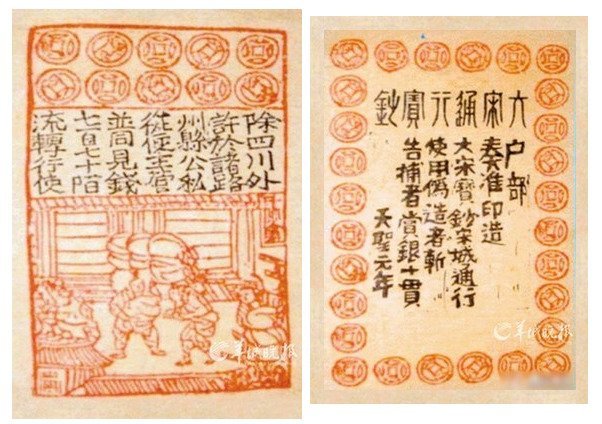 除四川外
許於諸路
州縣公私
從便主管
並同見錢
七百七十陌
流轉行使
大宋通行寶鈔
户部
奏准印造
大宋寶鈔宋城通行
使用偽造者斬
告捕者賞銀十貫
天聖元年
羊城晚报
羊城晚报